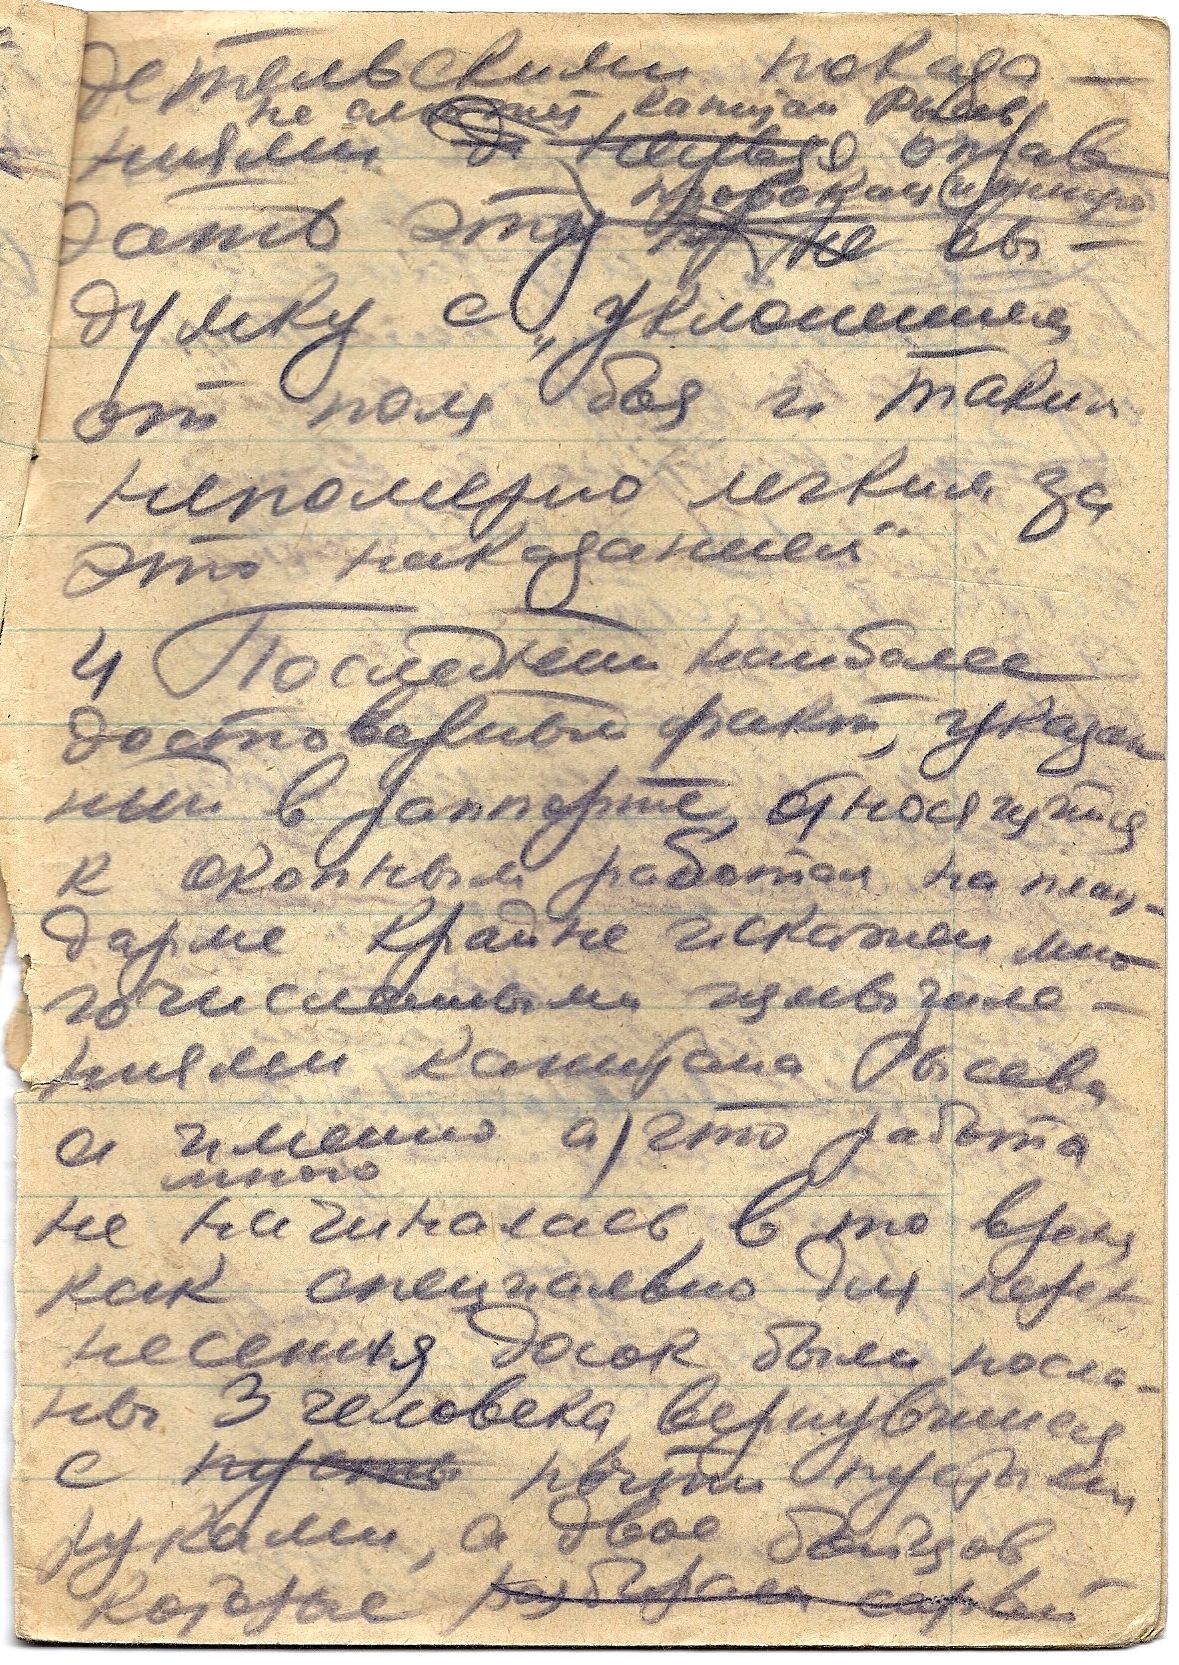 детельскими показа-
не
капитан Рысев
ниями нельзя оправ
дать эту не вы-
думку с „уклонением
от поля боя и таким
непомерно легким за
это наказанием"
4 Последний наиболее
достоверный факт, указан
ный в рапорте, относящийся
к окопным работам на плац-
дарме крайне искажен мно
гочисленными
ниями капитана Рысева
а именно а) что работа
мною
не начиналась, в то время
как специально для пере
несения досок были посла-
ны 3 человека вернувшиеся
с пусты почти пустыми
руками, а двое бойцов
которые разбирали сарай